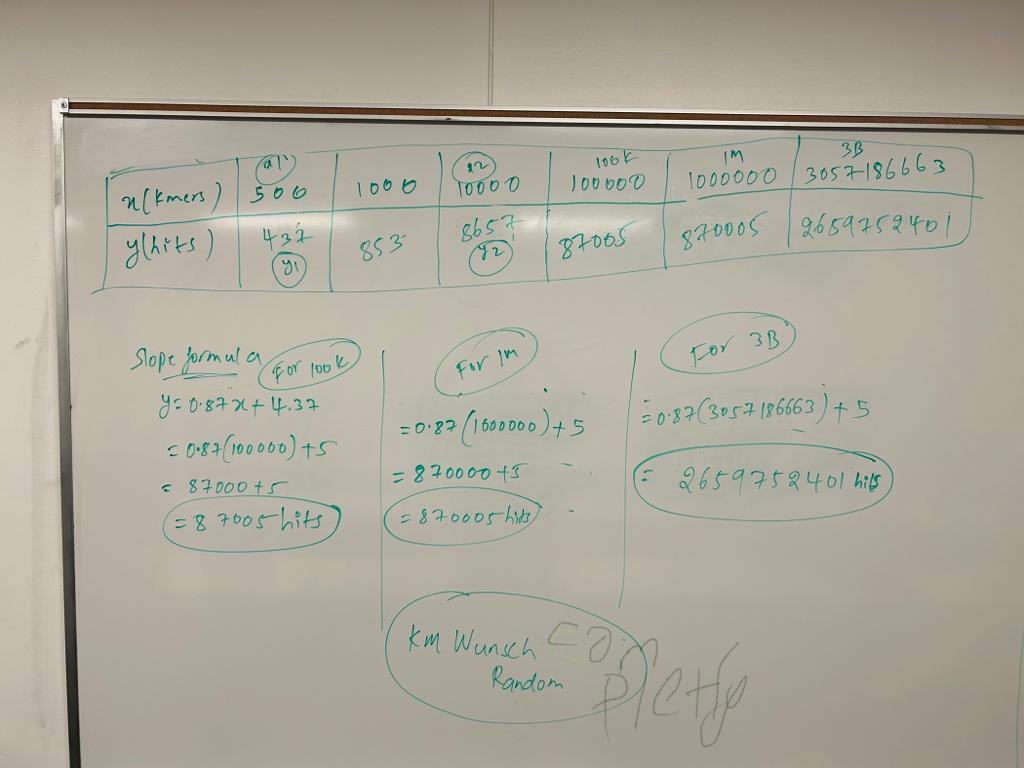 x1
x2
100k
1m
3B
x(kmers) 500 1000 10000 100000 1000000 3057186663
y(hits) 437 853 8657 87005 870005 2659752401
y1
y2
Slope formula For 100k
y=0.87x+4.37
=0.87(100000)+5
= 87000+5
=87005 hits
For 1m
=0.87(1000000)+5
=870000+5
=870005 hits
For 3B
=0.87(3057186663)+5
= 2659752401 hits
Km Wunsch
Random